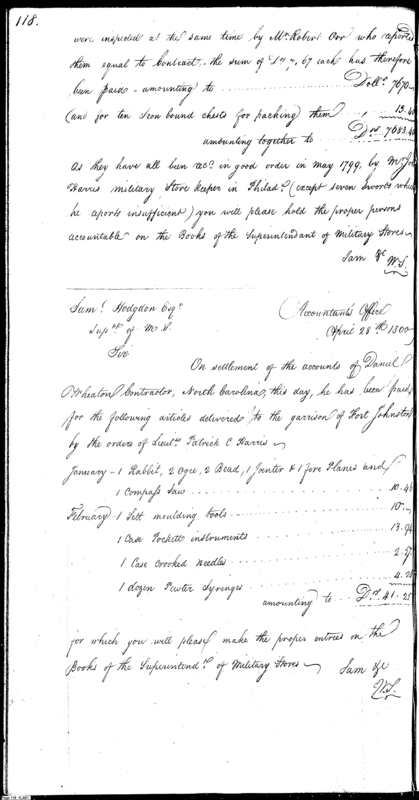 118.
were inspected at the same time by Mr. Robert Orr who reports
them equal to Contract. - the sum of 7.67 each has therefore
been paid - amounting to ... Dolls. 7670 -
(and for ten Iron bound chests for packing) them ... 13.40
amounting together to Drs. 7683.40
As they have all been recd. in good order in May 1799, by Mr. Jno.
Harris Military Store keeper in Philada. (except seven swords which
he reports insufficient) you will please hold the proper persons
accountable on the Books of the Superintendant of Military Stores
I am &c
W.S.
Saml. Hodgdon Esqr.
Supt. of M. S.
Accountants Office
April 28th 1800
Sir
On settlement of the accounts of Daniel
Wheaton Contractor, North Carolina, this day, he has been paid
for the following articles delivered to the garrison of Fort Johnston
by the orders of Lieut. Patrick C Harris
January - 1 Rabbit, 2 Ogee, 2 Bead, 1 Jointer & 1 fore Planes and
1 Compass Saw ... 10.46
February 1 Sett moulding tools ... 10. -
1 Case Pockett instruments ... 13.94
1 Case Crooked Needles ... 2.27
1 dozen Pewter Syringes ... 4.28
amounting to Drs. 41.25
for which you will please make the proper entries on the
Books of the Superintendt. of Military Stores
I am &c
W.S.